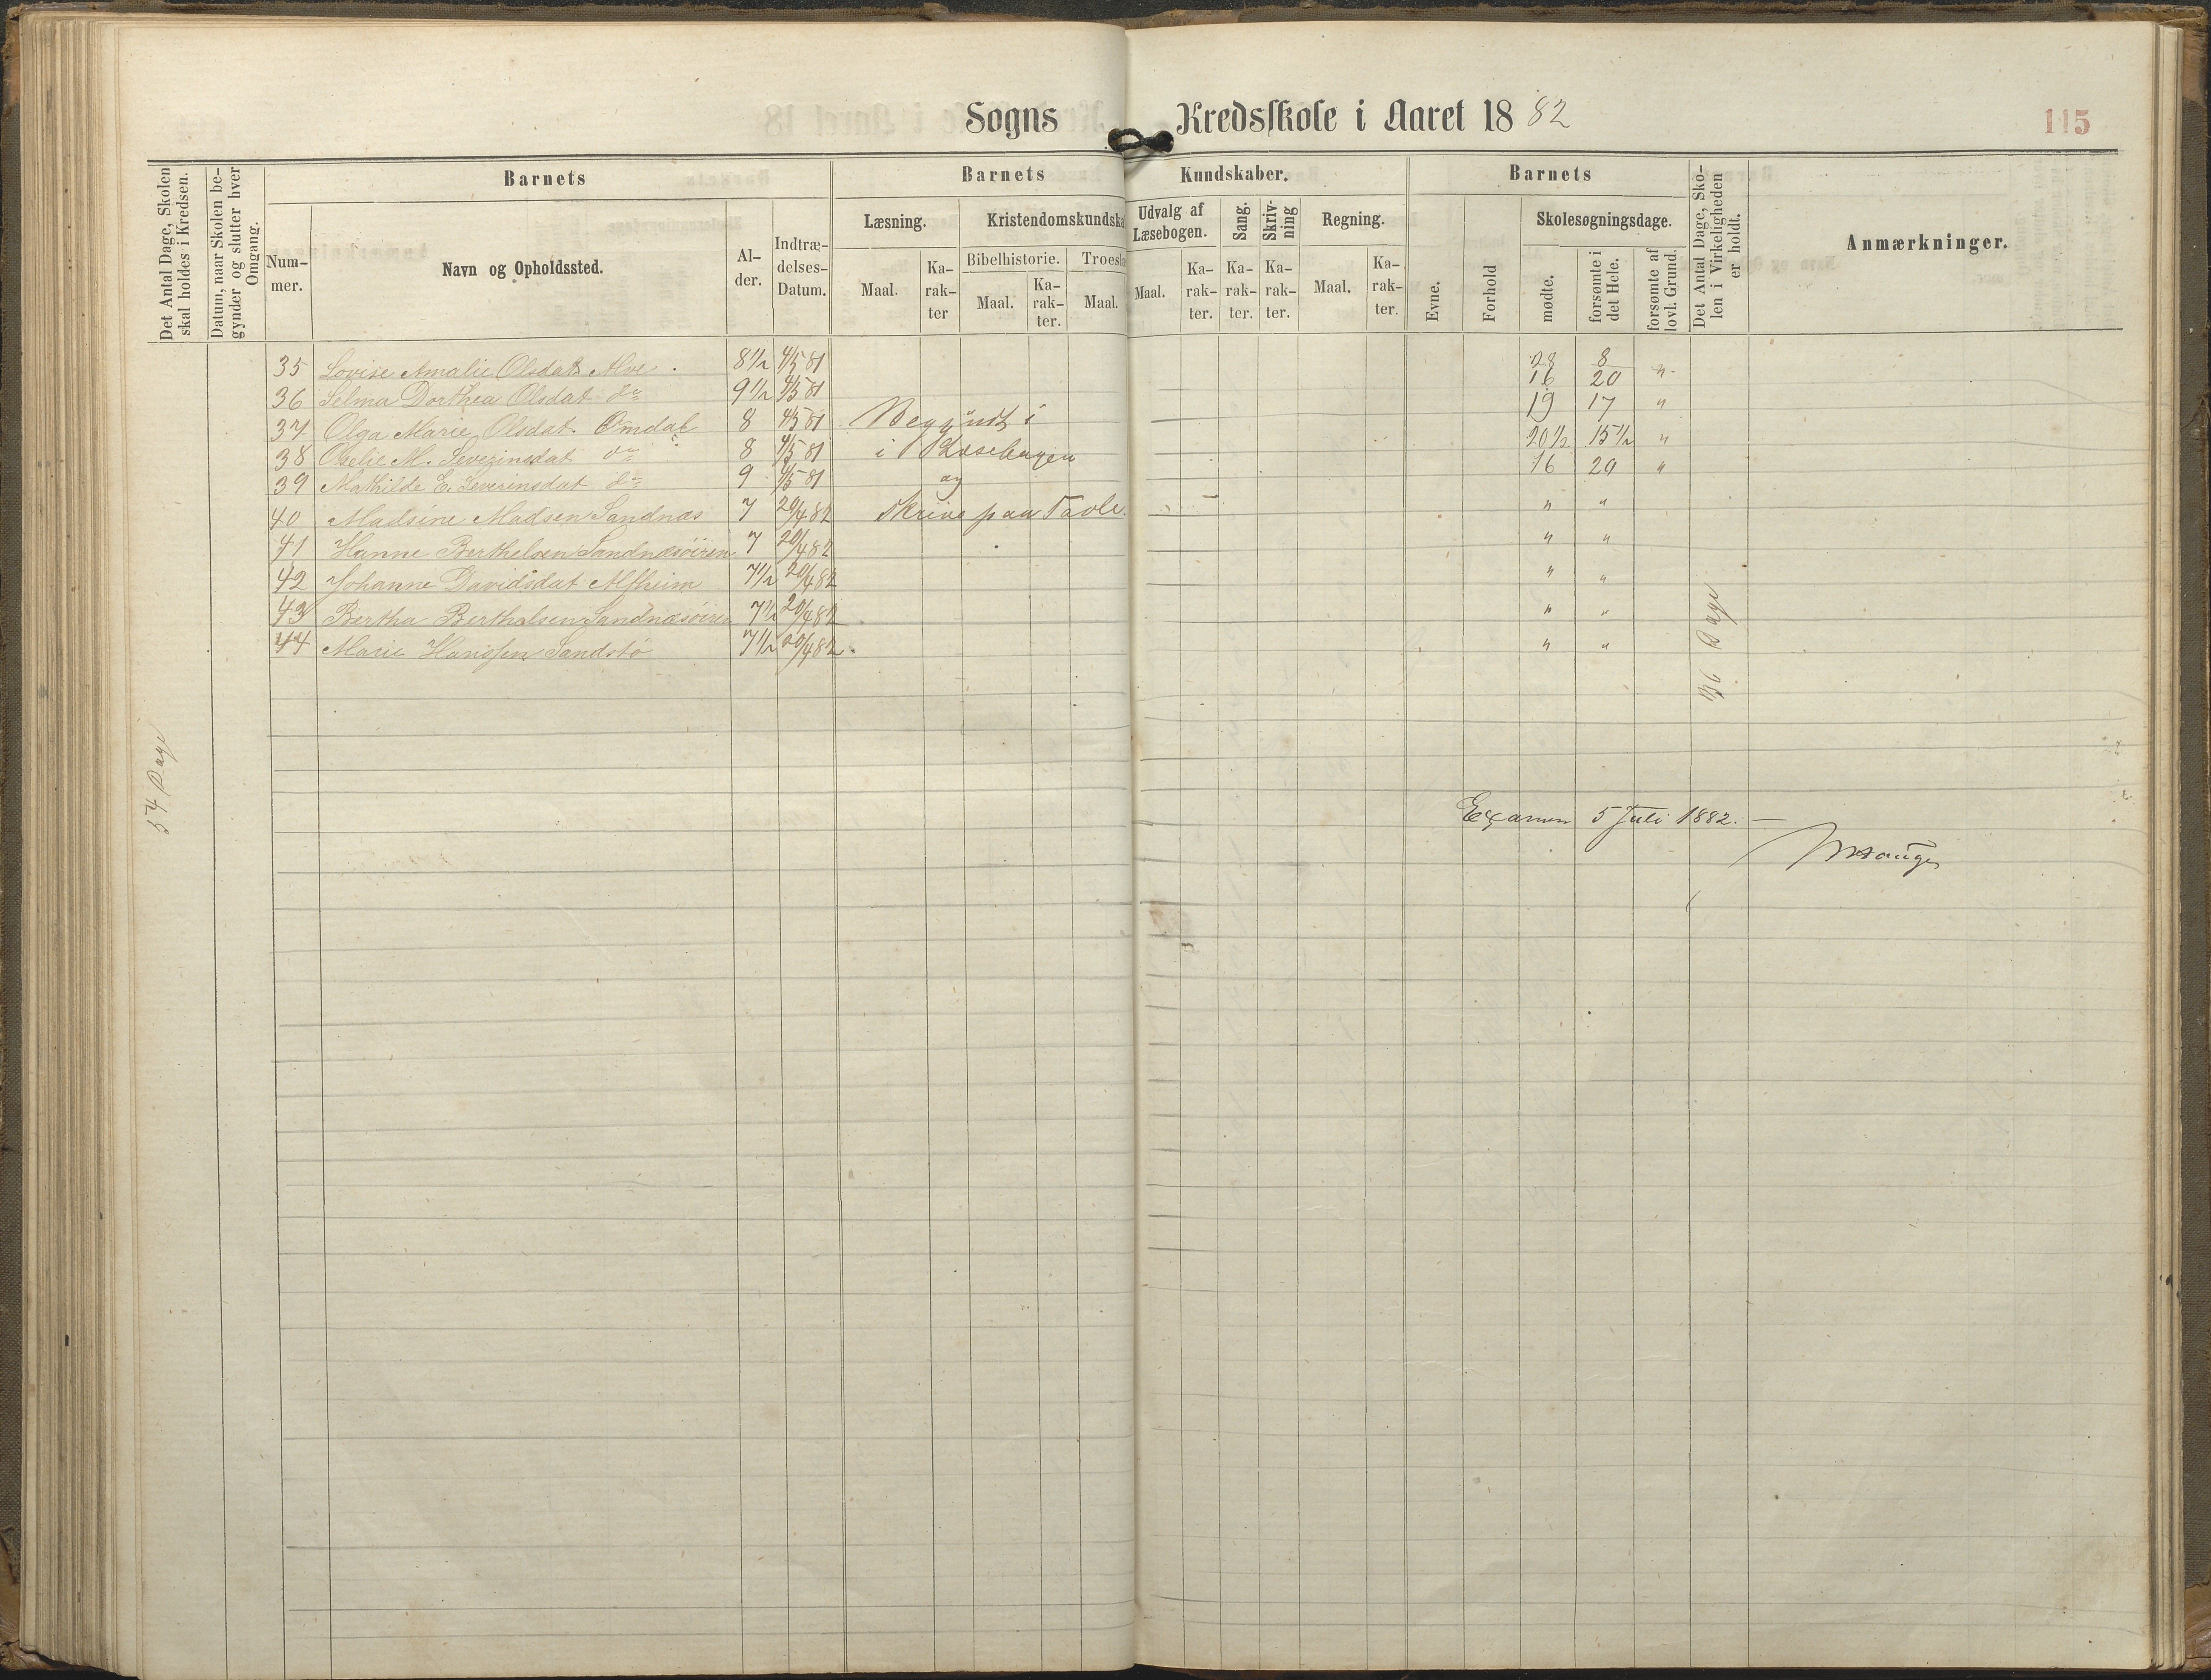 Sogns Kredsskole i Aaret 1882
115
Det Antal Dage, Skolen skal holdes i Kredsen.
Datum, naar Skolen begynder og slutter hver Omgang.
Barnets
Nummer.
Navn og Opholdssted.
Alder.
Indtrædelses-Datum.
Barnets Kundskaber.
Læsning.
Maal.
Karakter
Kristendomskundska
Bibelhistorie.
Maal.
Karakter.
Troesl
Maal.
Udvalg af Læsebogen.
Maal.
Karakter.
Sang.
Karakter.
Skrivning
Karakter.
Regning.
Maal.
Karakter.
Barnets
Evne.
Forhold
Skolesøgningsdage.
mødte.
forsømte i det Hele.
forsømte af lovl. Grund.
Det Antal Dage, Skolen i Virkeligheden er holdt.
Anmærkninger.
35 Lovise Amalie Olsdat. Alve. 8 1/2 4/5 81 28 8 "
36 Selma Dorthea Olsdat do 9 1/2 4/5 81 16 20 "
37 Olga Marie Olsdat. Omdal 8 4/5 81 Begyndt i 19 17 "
38 Oselie M. Severinsdat do 8 4/5 81 i Læsebogen 20 1/2 15 1/2 "
39 Mathilde E. Severinsdat do 9 4/5 81 og 16 20 "
40 Madsine Madsen Sandnæs 7 20/4 82 Skrive paa Tavle. " "
41 Hanne Berthelsen Sandnæsøiren 7 20/4 82 " "
42 Johanne Davidsdat Alfheim 7 1/2 20/4 82 " "
43 Bertha Berthalsen Sandnæsøiren 7 1/2 20/4 82 " "
44 Marie Hanssen Sandstø 7 1/2 20/4 82. " "
36 Dage
54 Dage
Examen 5 Juli 1882. —